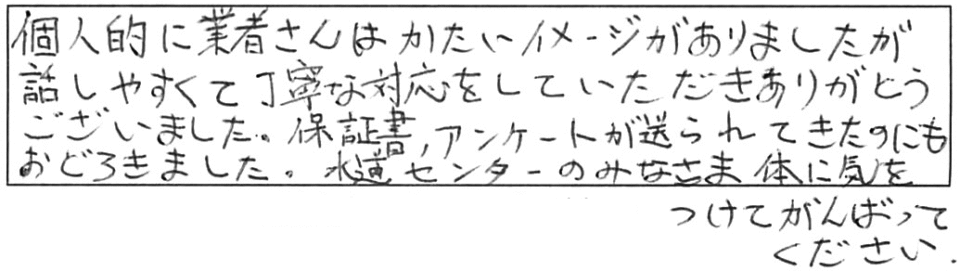 個人的に業者さんはかたいイメージがありましたが
話しやすくて丁寧な対応をしていただきありがとう
ございました。保証書,アンケートが送られてきたのにも
おどろきました。水道センターのみなさま体に気を
つけてがんばって
ください.